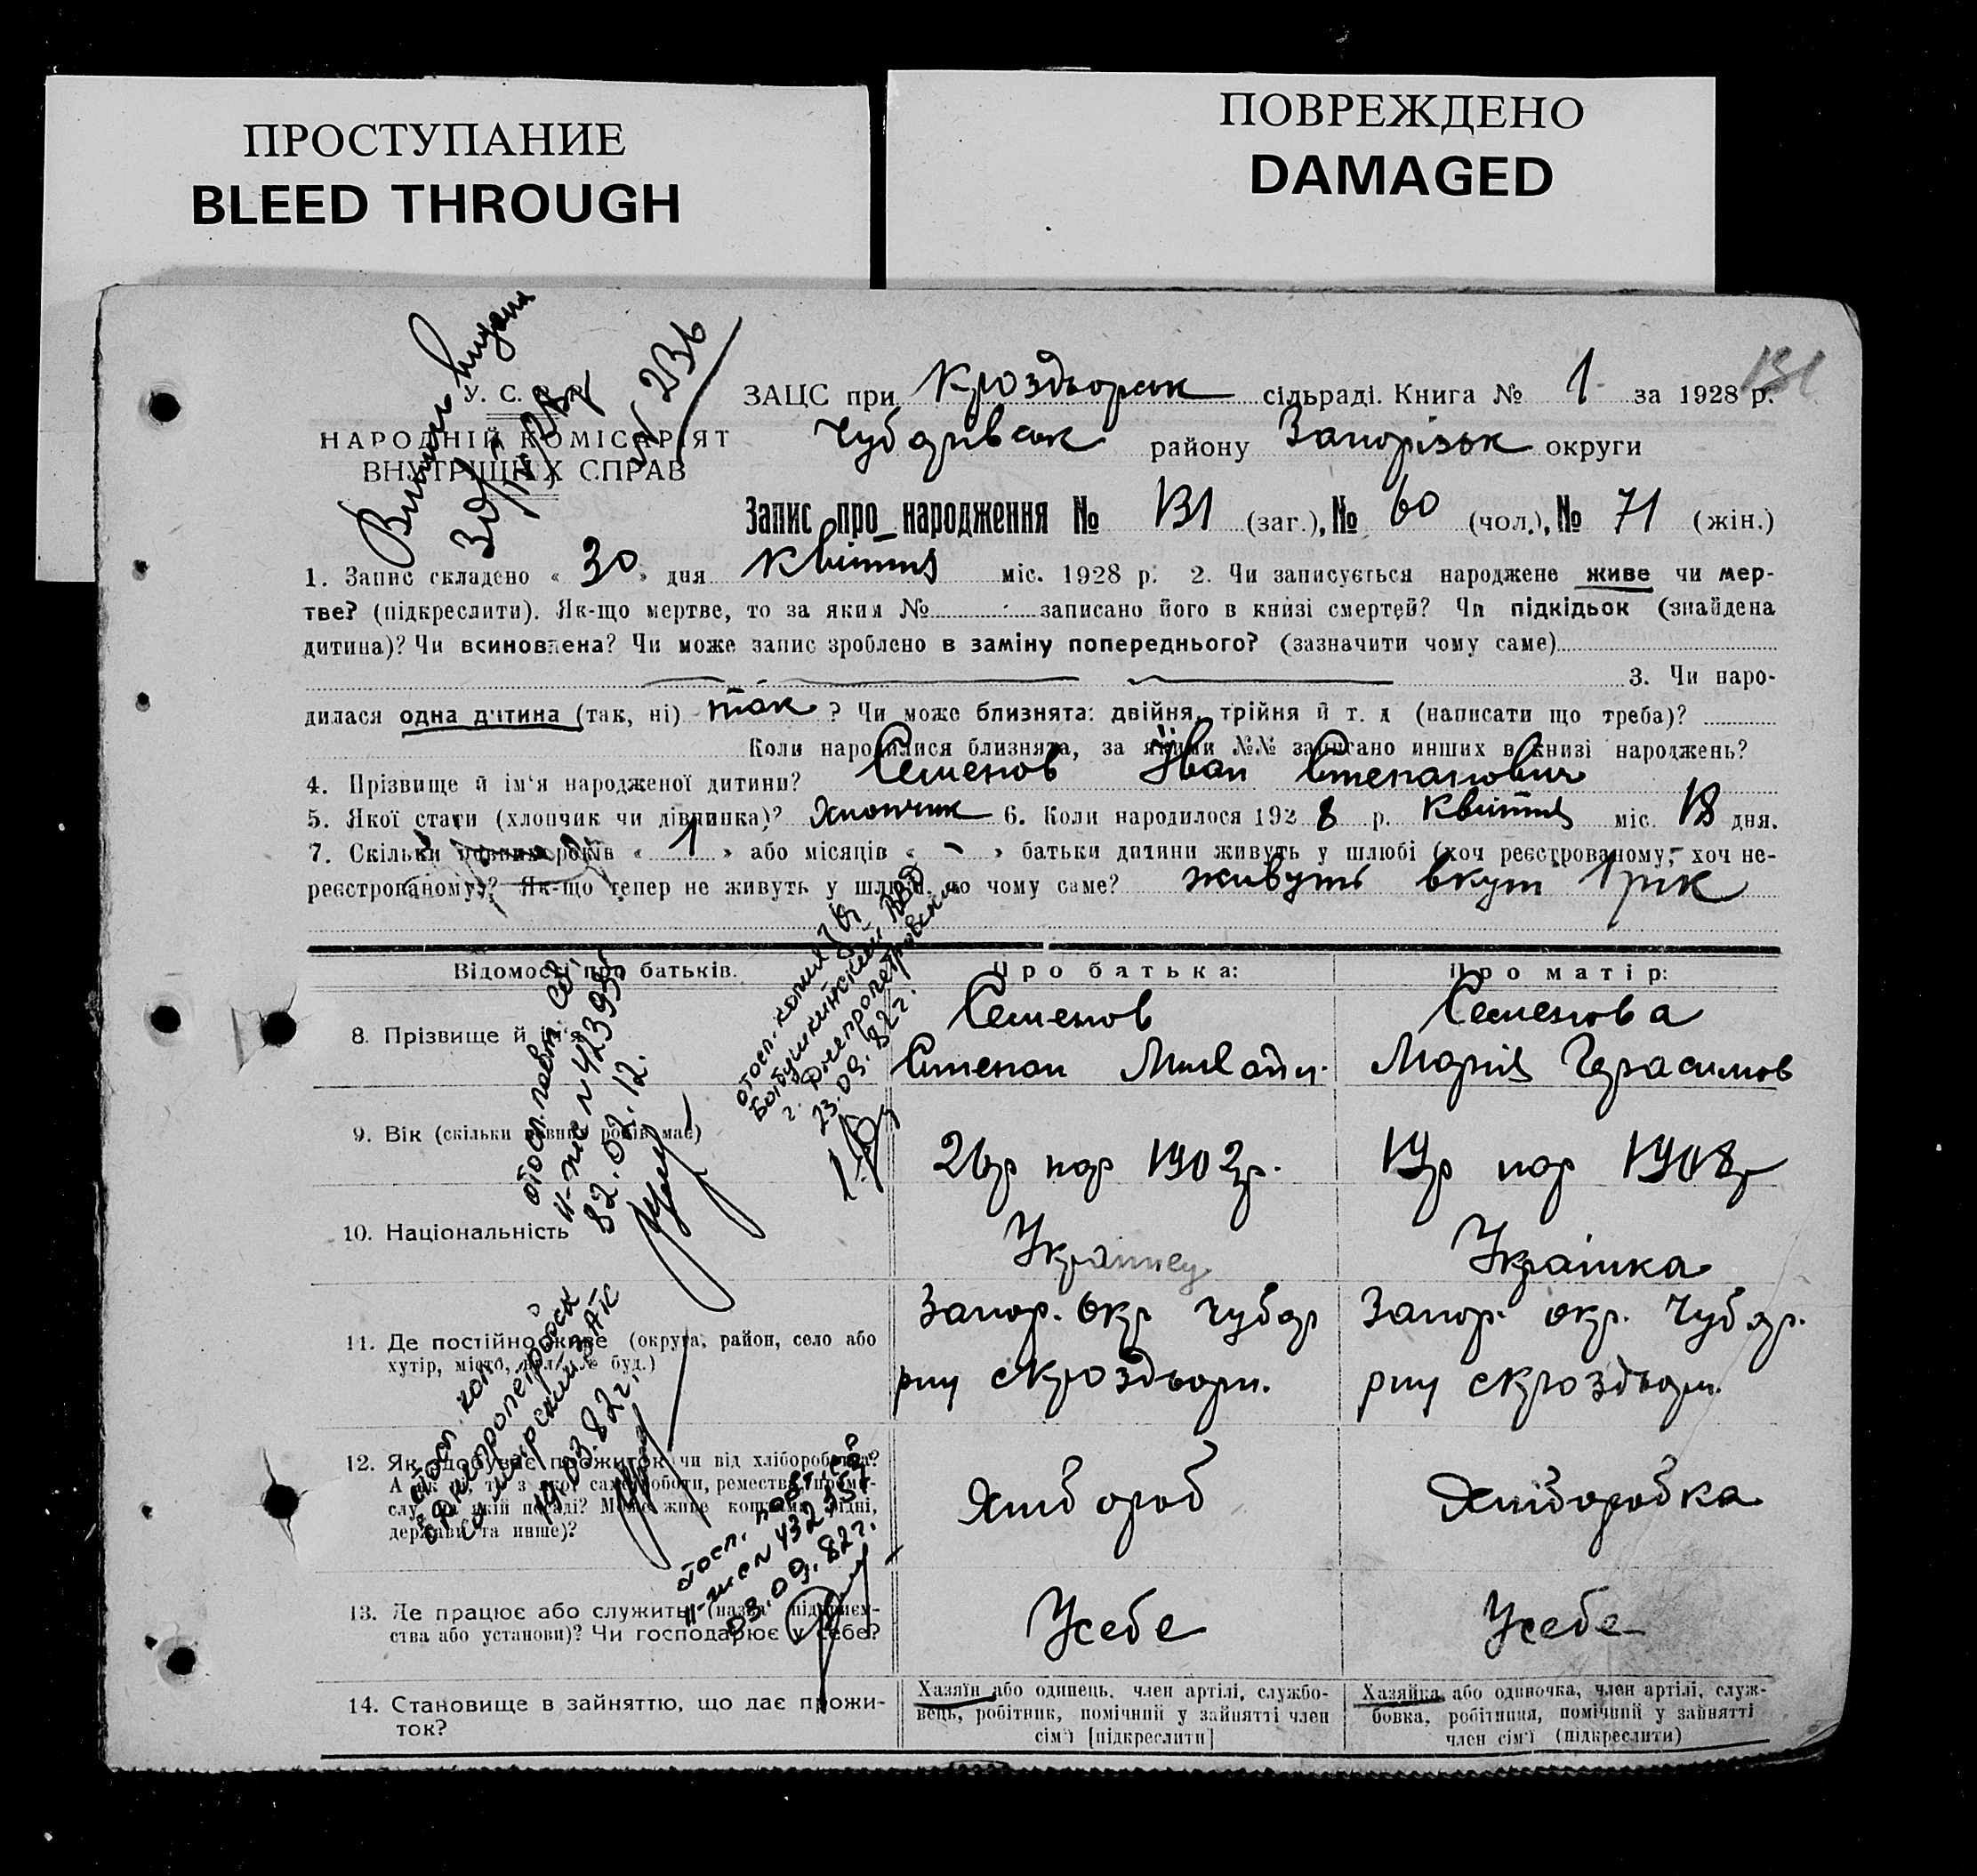 ПРОСТУПАНИЕ
BLEED THROUGH
ПОВРЕЖДЕНО
DAMAGED
131
У. С.
НАРОДНІЙ КОМІСАРІЯТ
ВНУТРІШНІХ СПРАВ
ЗАЦС при Кроздворськ сільраді. Книга № 1 за 1928 р.
Чубарівськ району Запорізьк округи
Запис про народження № 131 (заг.), № 60 (чол.), № 71 (жін.)
1. Запис складено « 30 » дня квітня міс. 1928 р. 2. Чи записується народжене живе чи мер-
тве? (підкреслити). Як-що мертве, то за яким № записано його в книзі смертей? Чи підкідьок (знайдена
дитина)? Чи всиновлена? Чи може запис зроблено в заміну попереднього? (зазначити чому саме)
3. Чи наро-
дилася одна дитина (так, ні) так ? Чи може близнята: двійня, трійня й т. д (написати що треба)?
Коли народилися близнята, за якими №№ записано инших в книзі народжень?
4. Прізвище й ім'я народженої дитини? Семенов Іван Степанович
5. Якої стати (хлопчик чи дівчинка)? Хлопчик 6. Коли народилося 192 8 р. квітня міс. 18 дня.
7. Скільки повних років « 1 » або місяців « - » батьки дитини живуть у шлюбі (хоч реєстрованому, хоч не-
реєстрованому)? Як-що тепер не живуть у шлюбі, то чому саме? живуть вкуп 1 рік
Відомості про батьків. Про батька: Про матір:
8. Прізвище й ім'я Семенов Семенова
Степан Михайл. Марія Герасимов
9. Вік (скільки повних років має) 26р нар 1902р. 19р нар 1908р
10. Національність Українец Українка
11. Де постійно живе (округа, район, село або Запор. окр Чубар Запор. окр. Чубар.
хутір, місто, вул. № буд.) рну скроздвори. рну скроздвори.
12. Як здобуває прожиток чи від хліборобства? Хлібороб Хліборобка
А як ні, то з якої саме роботи, ремества, проми-
слу, на якій посаді? Може живе коштами рідні,
держави та инше)?
13. Де працює або служить (назва підприєм- Усебе Усебе
ства або установи)? Чи господарює у себе?
14. Становище в зайняттю, що дає прожи-
ток?
Хазяїн або одинець, член артілі, службо-
вець, робітник, помічний у зайнятті член
сім'ї [підкреслити]
Хазяйка або одиночка, член артілі, служ-
бовка, робітниця, помічний у зайнятті
член сім'ї (підкреслити)
отосл. повт. св.
82.02.12.
отосл. копия
Бабушкинский
г. Днепропетровска
23.09.82г.
отосл. коп.
Днепропетровск
Самарский ЗАГС
19.03.82г.
отосл. повт. св.
03.09.82г.